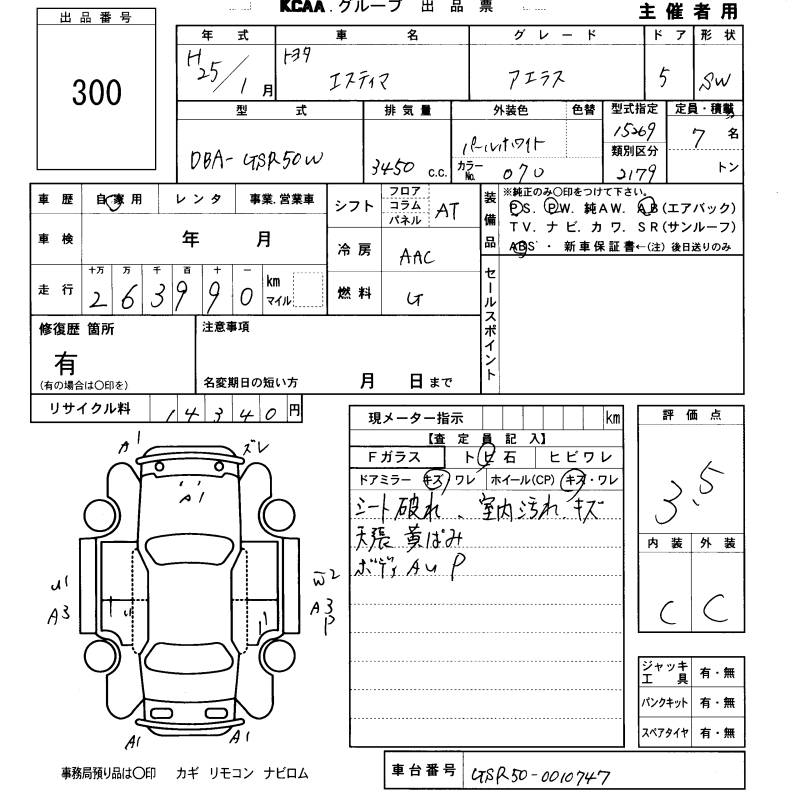 KCAA.グループ 出品票
主催者用
出品番号
300
年式 車名 グレード ドア 形状
H25/1月 トヨタ エスティマ アエラス 5 SW
型式 排気量 外装色 色替 型式指定 定員・積載
DBA-GSR50W 3450 c.c. パールホワイト 15269 7名
カラーNo. 070 類別区分 2179 トン
車歴 自家用 レンタ 事業.営業車
車検 年 月
走行 十万 万 千 百 十 一 km マイル
263990
シフト フロア コラム パネル AT
冷房 AAC
燃料 G
装備品 ※純正のみ○印をつけて下さい。
P.S. P.W. 純A.W. A.B(エアバック)
T.V. ナビ. カワ. S.R(サンルーフ)
ABS・ 新車保証書←(注)後日送りのみ
セールスポイント
修復歴 箇所
有
(有の場合は○印を)
注意事項
名変期日の短い方 月 日まで
リサイクル料 14340円
現メーター指示 km
【査定員記入】
Fガラス トビ石 ヒビワレ
ドアミラー キズ・ワレ ホイール(CP) キズ・ワレ
シート破れ、室内汚れ.キズ
天張 黄ばみ
ボディ AU P
評価点
3.5
内装 外装
C C
ジャッキ工具 有・無
パンクキット 有・無
スペアタイヤ 有・無
A1 ズレ
A1
U1 W2
A3 A3
P
A1 A1
事務局預り品は○印 カギ リモコン ナビロム
車台番号 GSR50-0010747